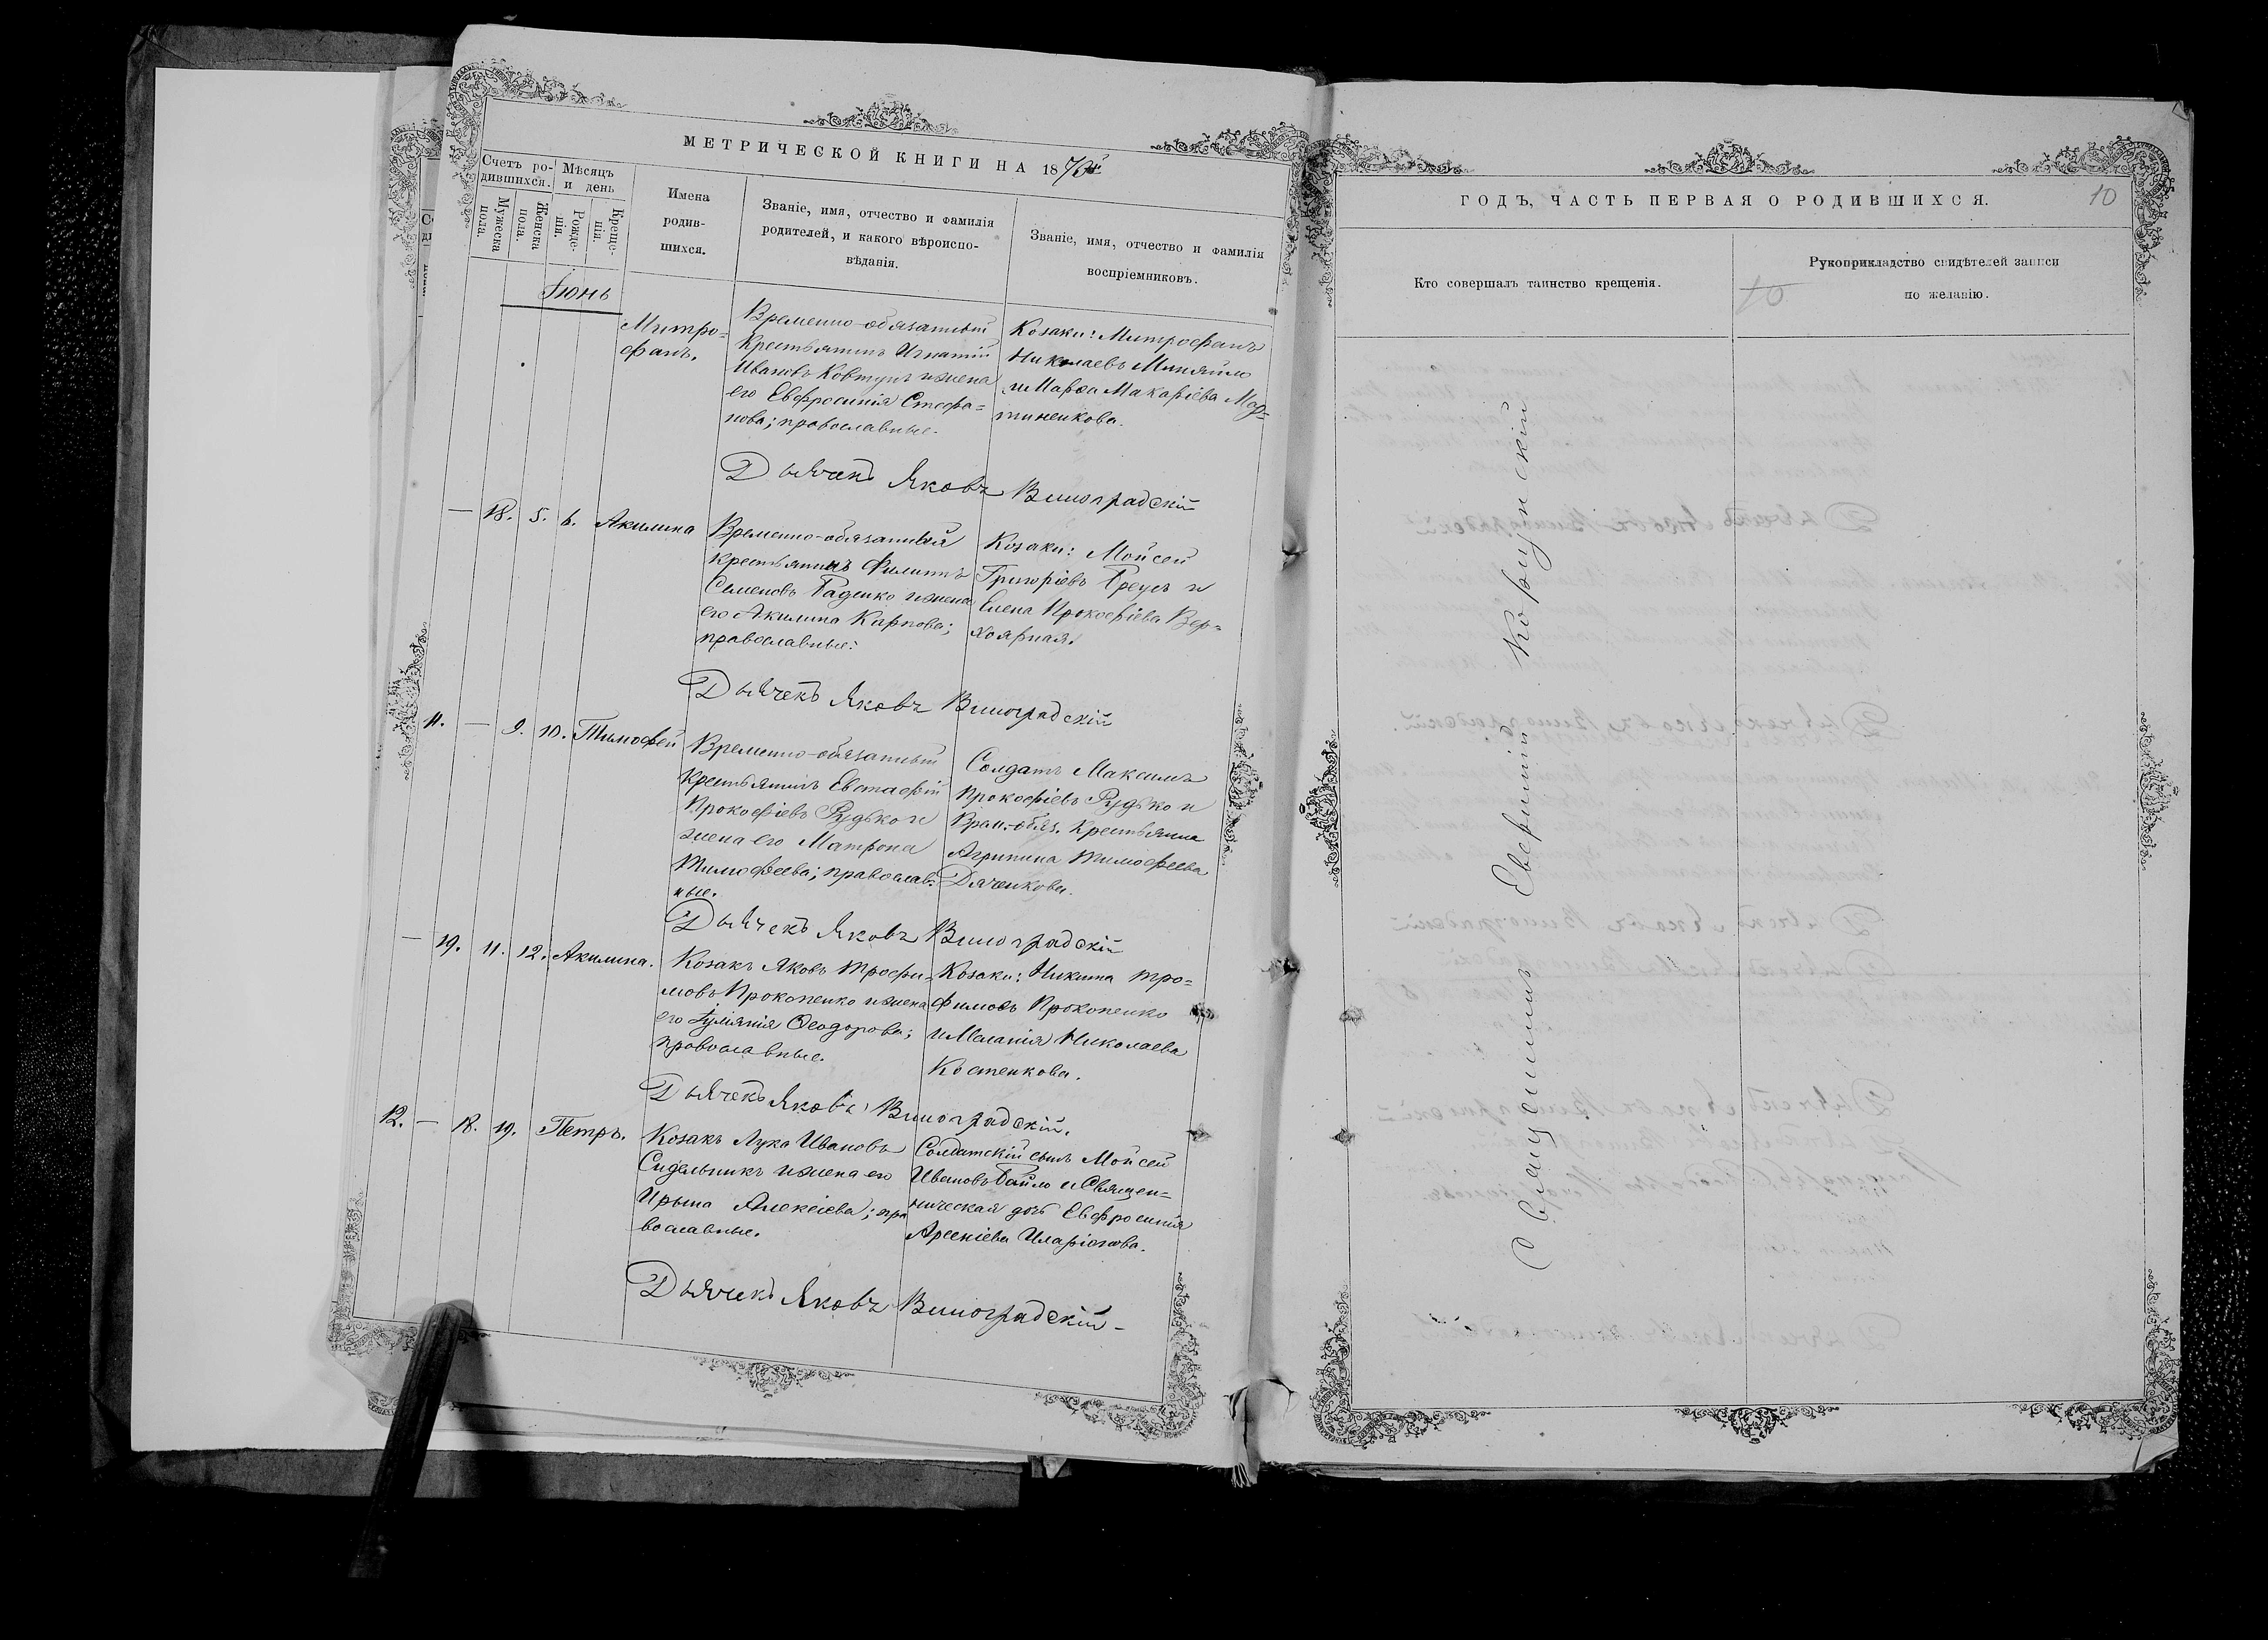 МЕТРИЧЕСКОЙ КНИГИ НА 18
Счетъ ро-
дившихся.
Мѣсяцъ
и день
Мужеска
пола.
Женска
пола.
Рожде-
нія.
Креще-
нія.
Имена
родив-
шихся.
Званіе, имя, отчество и фамилія
родителей, и какого вѣроиспо-
вѣданія.
Званіе, имя, отчество и фамилія
воспріемниковъ.
Іюнь
Митро=
фанъ.
Временно-обязанный
Крестьянинъ Игнатій
Ивановъ Ковтунъ и жена
его Евфросинія Стефа=
нова; православные.
Козаки: Митрофанъ
Николаевъ Миняйло
и Марѳа Макаріева Мар=
тиненкова.
Дьячекъ Яковъ Виноградскій
— 18. 5. 6. Акилина
Временно-обязанный
крестьянинъ Филиппъ
Семеновъ Гаденко и жена
его Акилина Карпова;
православные.
Козаки: Мойсей
Григоріевъ Греусъ и
Елена Прокофіева Вер=
хоярная.
Дьячекъ Яковъ Виноградскій
11. — 9. 10. Тимофей
Временно-обязанный
крестьянинъ Евстафій
Прокофіевъ Рудько и
жена его Матрона
Тимофеева; православ=
ные.
Солдатъ Максимъ
Прокофіевъ Рудько и
Врем.-обяз. крестьянка
Агрипина Тимофеева
Дяченкова.
Дьячекъ Яковъ Виноградскій
— 19. 11. 12. Акилина.
Козакъ Яковъ Трофи=
мовъ Прокопенко и жена
его Іуліянія Ѳеодорова;
православные.
Козаки: Никита Тро=
фимовъ Прокопенко
и Меланія Николаева
Костенкова.
Дьячекъ Яковъ Виноградскій.
12. — 18. 19. Петръ.
Козакъ Лука Ивановъ
Сидельникъ и жена его
Ирына Алексіева; пра
вославные.
Солдатскій сынъ Мойсей
Ивановъ Гайло и Священ=
ническая дочь Евфросинія
Арсеніева Иларіонова.
Дьячекъ Яковъ Виноградскій
ГОДЪ, ЧАСТЬ ПЕРВАЯ О РОДИВШИХСЯ.
10
Кто совершалъ таинство крещенія.
Рукоприкладство свидѣтелей записи
по желанію.
10
Священникъ Евфимій Корунскій